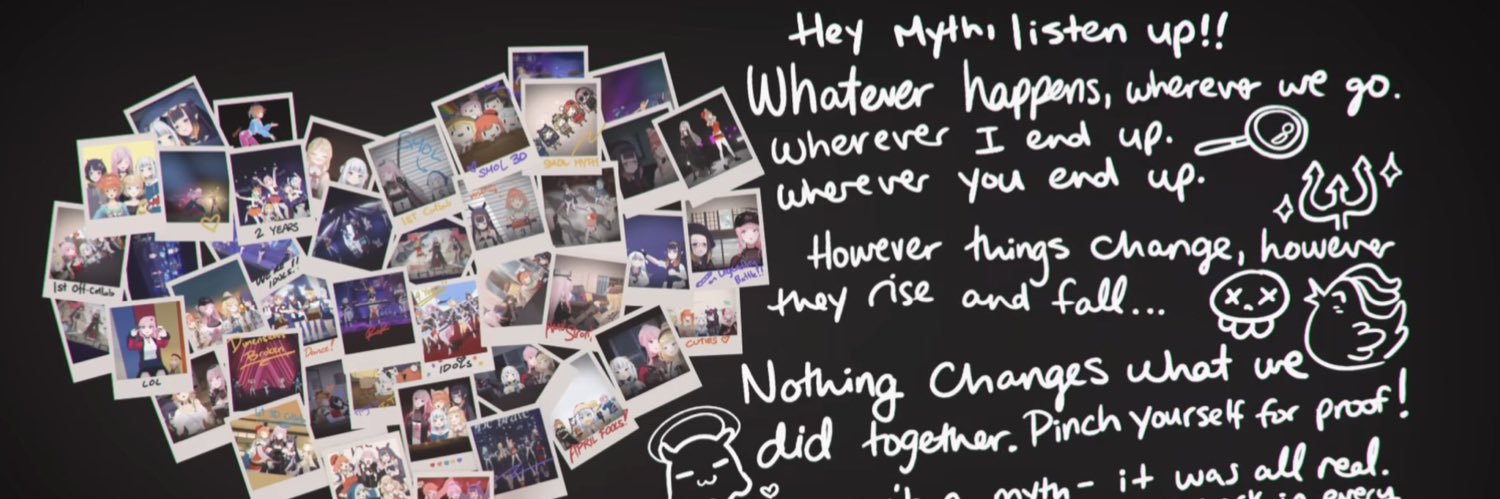 Hey Myth, listen up!!
Whatever happens, wherever we go.
wherever I end up.
wherever you end up.
However things change, however
they rise and fall...
Nothing changes what we
did together. Pinch yourself for proof!
myth- it was all real.
in every
2 YEARS
SMOL
1st Collab
SMOL 3D
SMOL MYTH
1st Off-Collab
IDOLS!!
LOL
Dimension
Broken
Dance!
IDOLS
CUTIES
APRIL FOOLS!